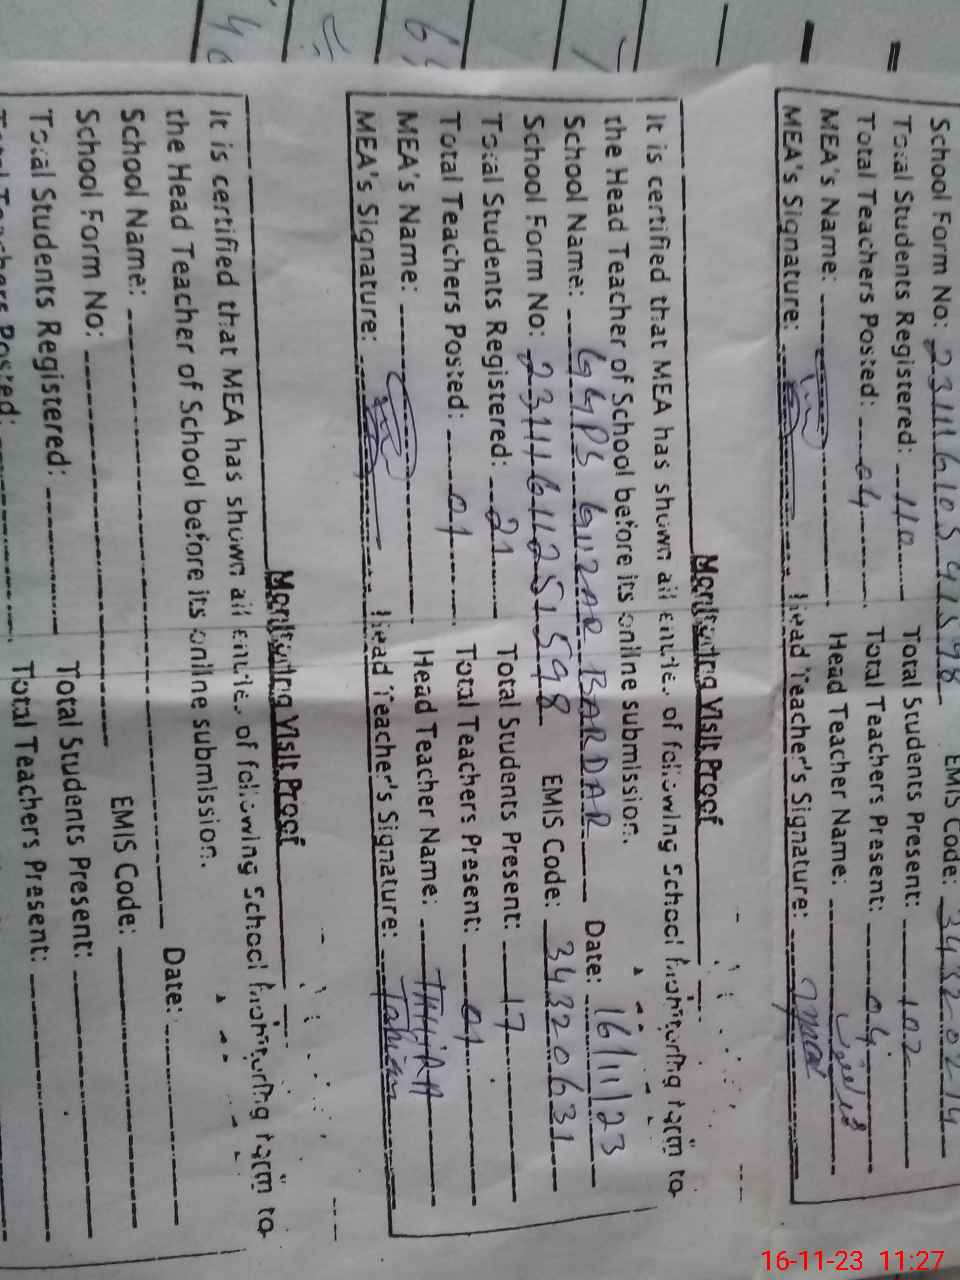 School Form No: 2311161054
EMIS Code: 34320214
Total Students Registered: 110 Total Students Present: 102
Total Teachers Posted: 04 Total Teachers Present: 04
MEA's Name: Head Teacher Name:
MEA's Signature: Head Teacher's Signature:
Monitoring Visit Proof
It is certified that MEA has shown all entries of following School Monitoring Form to
the Head Teacher of School before its online submission.
School Name: GGPS GUZAR BARDAR Date: 16/11/23
School Form No: 23111611251598 EMIS Code: 34320631
Total Students Registered: 21 Total Students Present: 17
Total Teachers Posted: 01 Total Teachers Present: 01
MEA's Name: Head Teacher Name: TAHIRA
MEA's Signature: Head Teacher's Signature: Tahira
Monitoring Visit Proof
It is certified that MEA has shown all entries of following School Monitoring Form to
the Head Teacher of School before its online submission.
School Name: Date:
School Form No: EMIS Code:
Total Students Registered: Total Students Present:
Total Teachers Posted: Total Teachers Present:
16-11-23 11:27